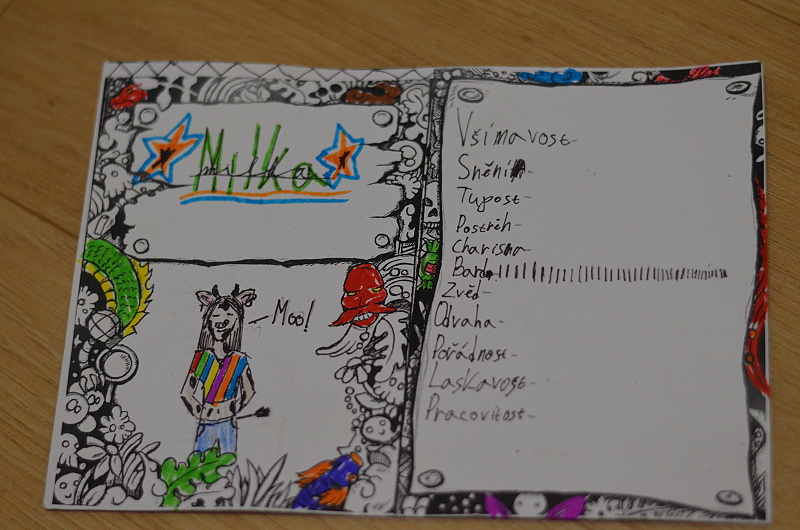 Milka
milka
Moo!
Všímavost-
Snění-
Tupost-
Postřeh-
Charisma-
Bard-
Zvěd-
Odvaha-
Pořádnost-
Laskavost-
Pracovitost-